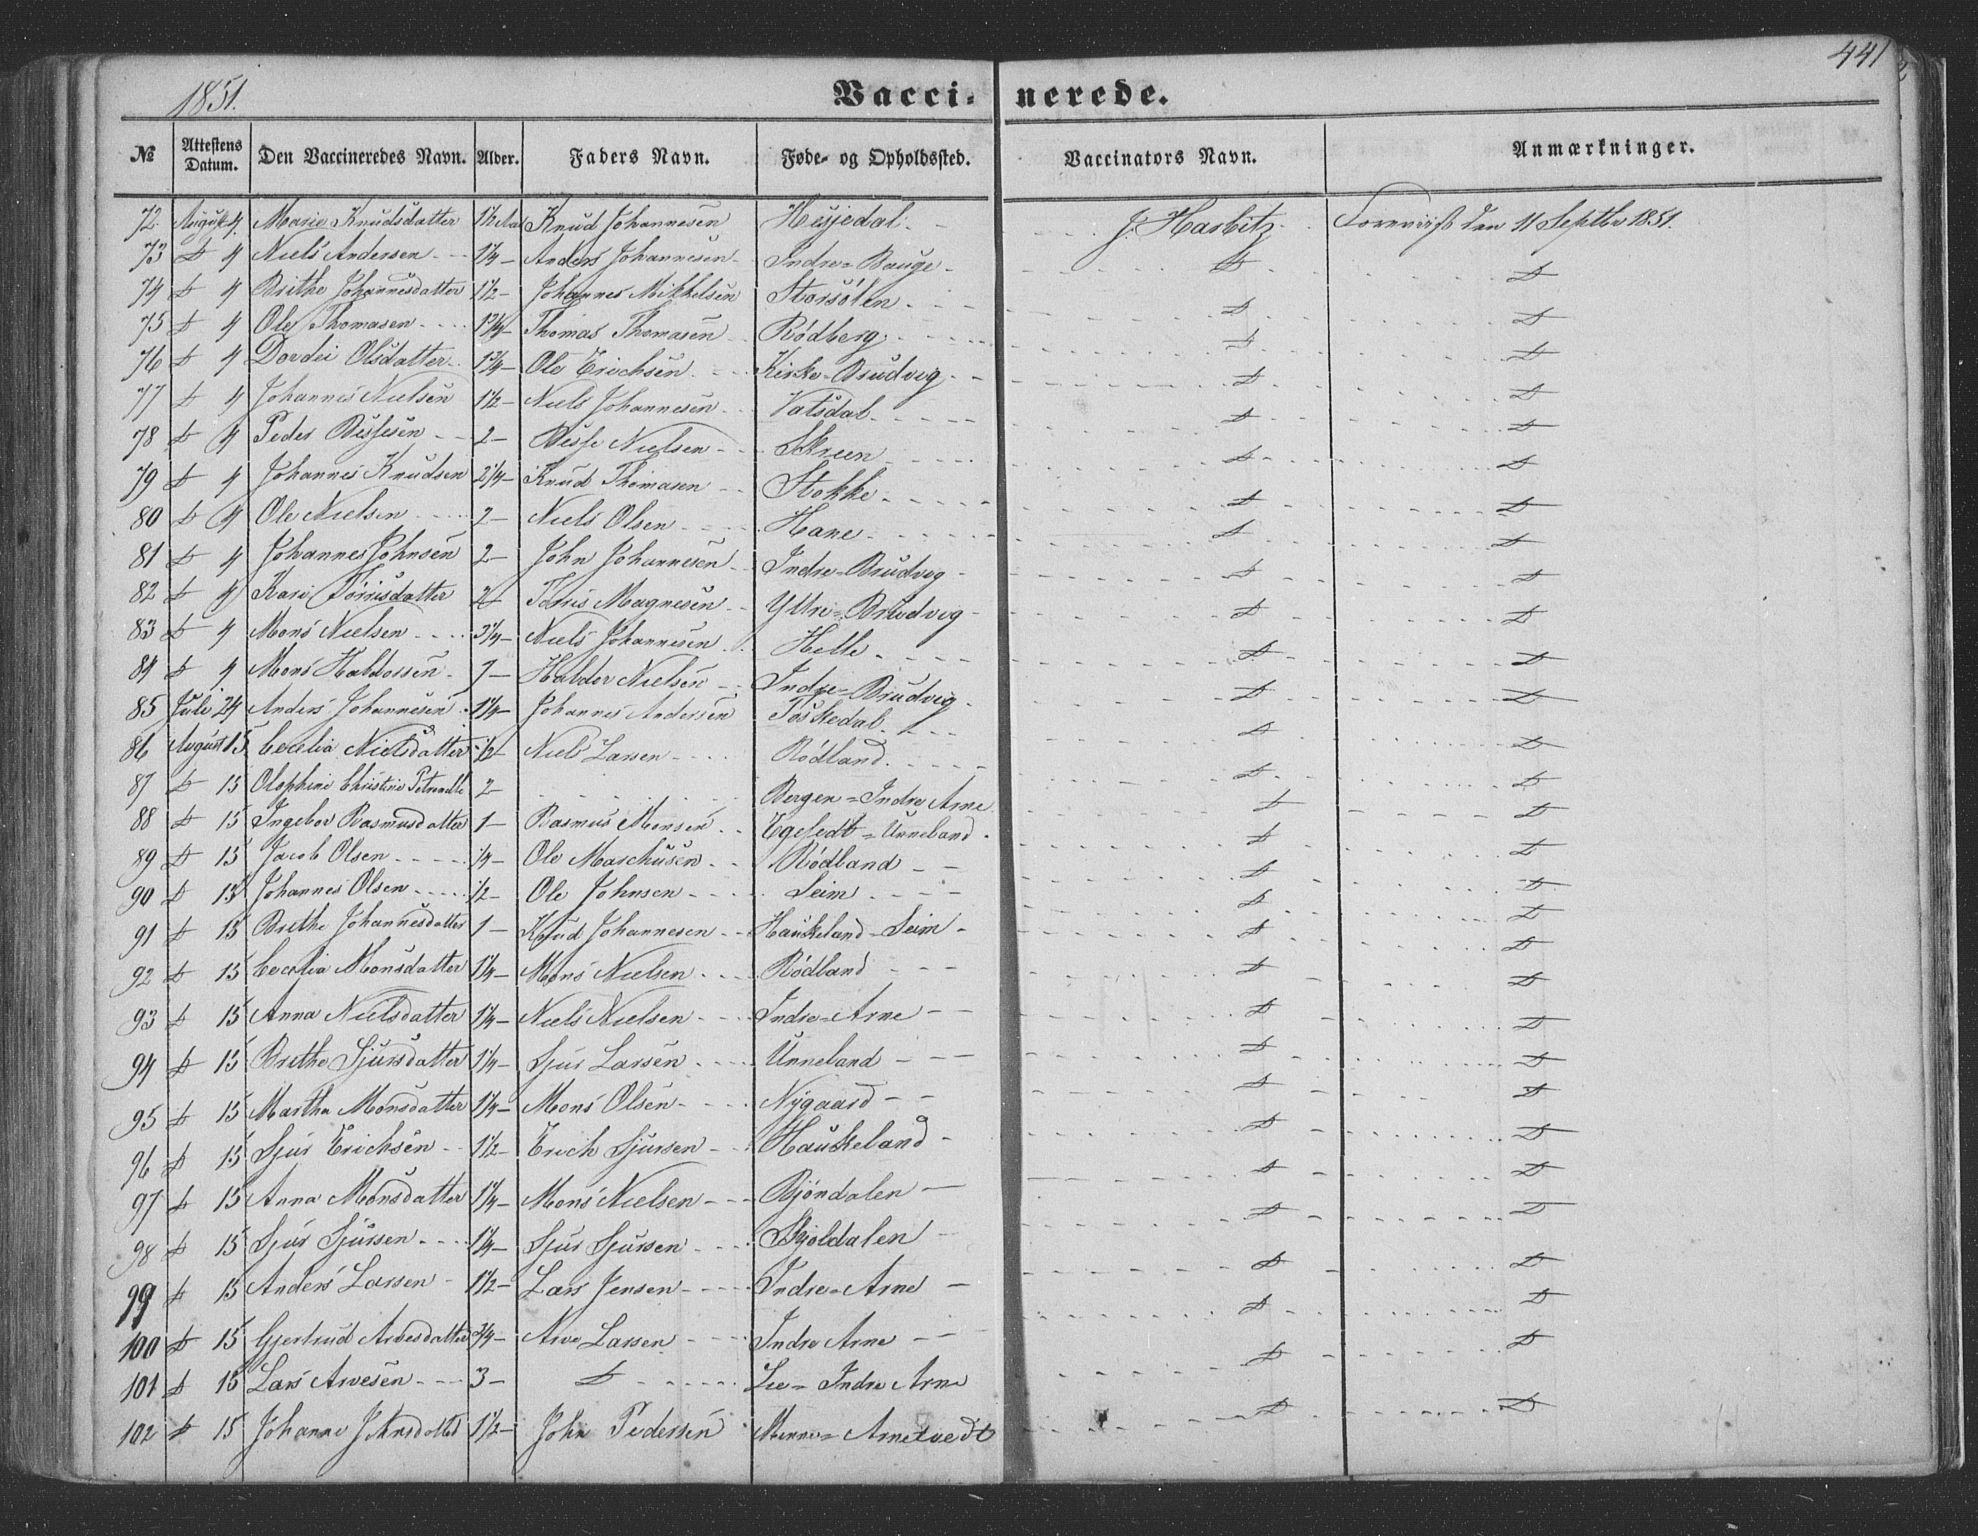 441
1851.
Vacci- nerede.
No Attestens Datum. Den Vaccineredes Navn. Alder. Faders Navn. Føde- og Opholdssted. Vaccinators Navn. Anmærkninger.
72 August 4. Marie Knudsdatter Knud Johannesen Hesjedal. J. Harbitz. den 11 Septbr 1851.
73 D 4 Niels Andersen 1 1/4 Anders Johannesen Indre-Bauge D D
74 D 4 Brithe Johannesdatter 1 1/2 Johannes Mikkelsen Storsølen D D
75 D 4 Ole Thomasen 1 3/4 Thomas Thomasen Rødberg D D
76 D 4 Dordei Olsdatter 1 3/4 Ole Erichsen Kirke-Brudvig D D
77 D 4 Johannes Nielsen 1 1/2 Niels Johannesen Vatsdal D D
78 D 4 Peder 2 Nielsen Skreen D D
79 D 4 Johannes Knudsen 2 1/4 Knud Thomasen Stokke D D
80 D 4 Ole Nielsen 2 Niels Olsen Hane D D
81 D 4 Johannes Johnsen 2 John Johannesen Indre-Brudvig D D
82 D 4 Kari Tørrisdatter 2 Tørris Magnesen Yttre-Brudvig D D
83 D 4 Mons Nielsen 3 1/4 Niels Johannesen Helle D D
84 D 4 Mons Haldorsen 7 Haldor Nielsen Indre-Brudvig D D
85 Juli 24 Anders Johannesen 1 1/4 Johannes Andersen Toskedal D D
86 August 15 Cecelia Nielsdatter 1/2 Niels Larsen Rødland D D
87 D 15 Olephine Christine Petronelle 2 Bergen-Indre Arne D D
88 D 15 Ingebor Rasmusdatter 1 Rasmus Monsen Unneland D D
89 D 15 Jacob Olsen 1/4 Ole Marchusen Rødland D D
90 D 15 Johannes Olsen 1/2 Ole Johnsen Seim D D
91 D 15 Brithe Johannesdatter 1 Knud Johannesen Haukeland-Seim D D
92 D 15 Cecelia Monsdatter 1 1/4 Mons Nielsen Rødland D D
93 D 15 Anna Nielsdatter 1 1/4 Niels Nielsen Indre-Arne D D
94 D 15 Brithe Sjursdatter 1 1/4 Sjur Larsen Unneland D D
95 D 15 Martha Monsdatter 1 1/4 Mons Olsen Nygaard D D
96 D 15 Sjur Erichsen 1 1/2 Erich Sjursen Haukeland D D
97 D 15 Anna Monsdatter 1 1/4 Mons Nielsen Bjøndalen D D
98 D 15 Sjur Sjursen 1 1/4 Sjur Sjursen Skjoldalen D D
99 D 15 Anders Larsen 1 1/2 Lars Jensen Indre-Arne D D
100 D 15 Gjertrud Arvesdatter 3/4 Arve Larsen Indre Arne D D
101 D 15 Lars Arvesen 3 D Indre Arne D D
102 D 15 Johanne Johnsdatter 1 1/2 John Pedersen Arnetvedt D D